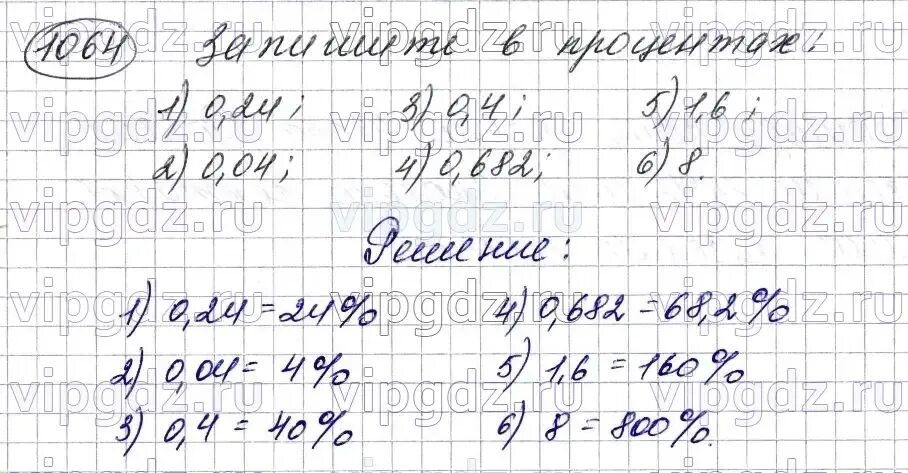 1064 Запишите в процентах:
1) 0,24; 3) 0,4; 5) 1,6;
2) 0,04; 4) 0,682; 6) 8.
Решение:
1) 0,24 = 24% 4) 0,682 = 68,2%
2) 0,04 = 4% 5) 1,6 = 160%
3) 0,4 = 40% 6) 8 = 800%.
vipgdz.ru vipgdz.ru vipgdz.ru